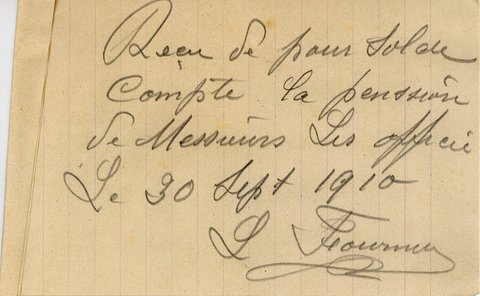 Reçu de pour Solde
Compte la penssion
de Messieurs Les officie
Le 30 Sept 1910
L Fournier